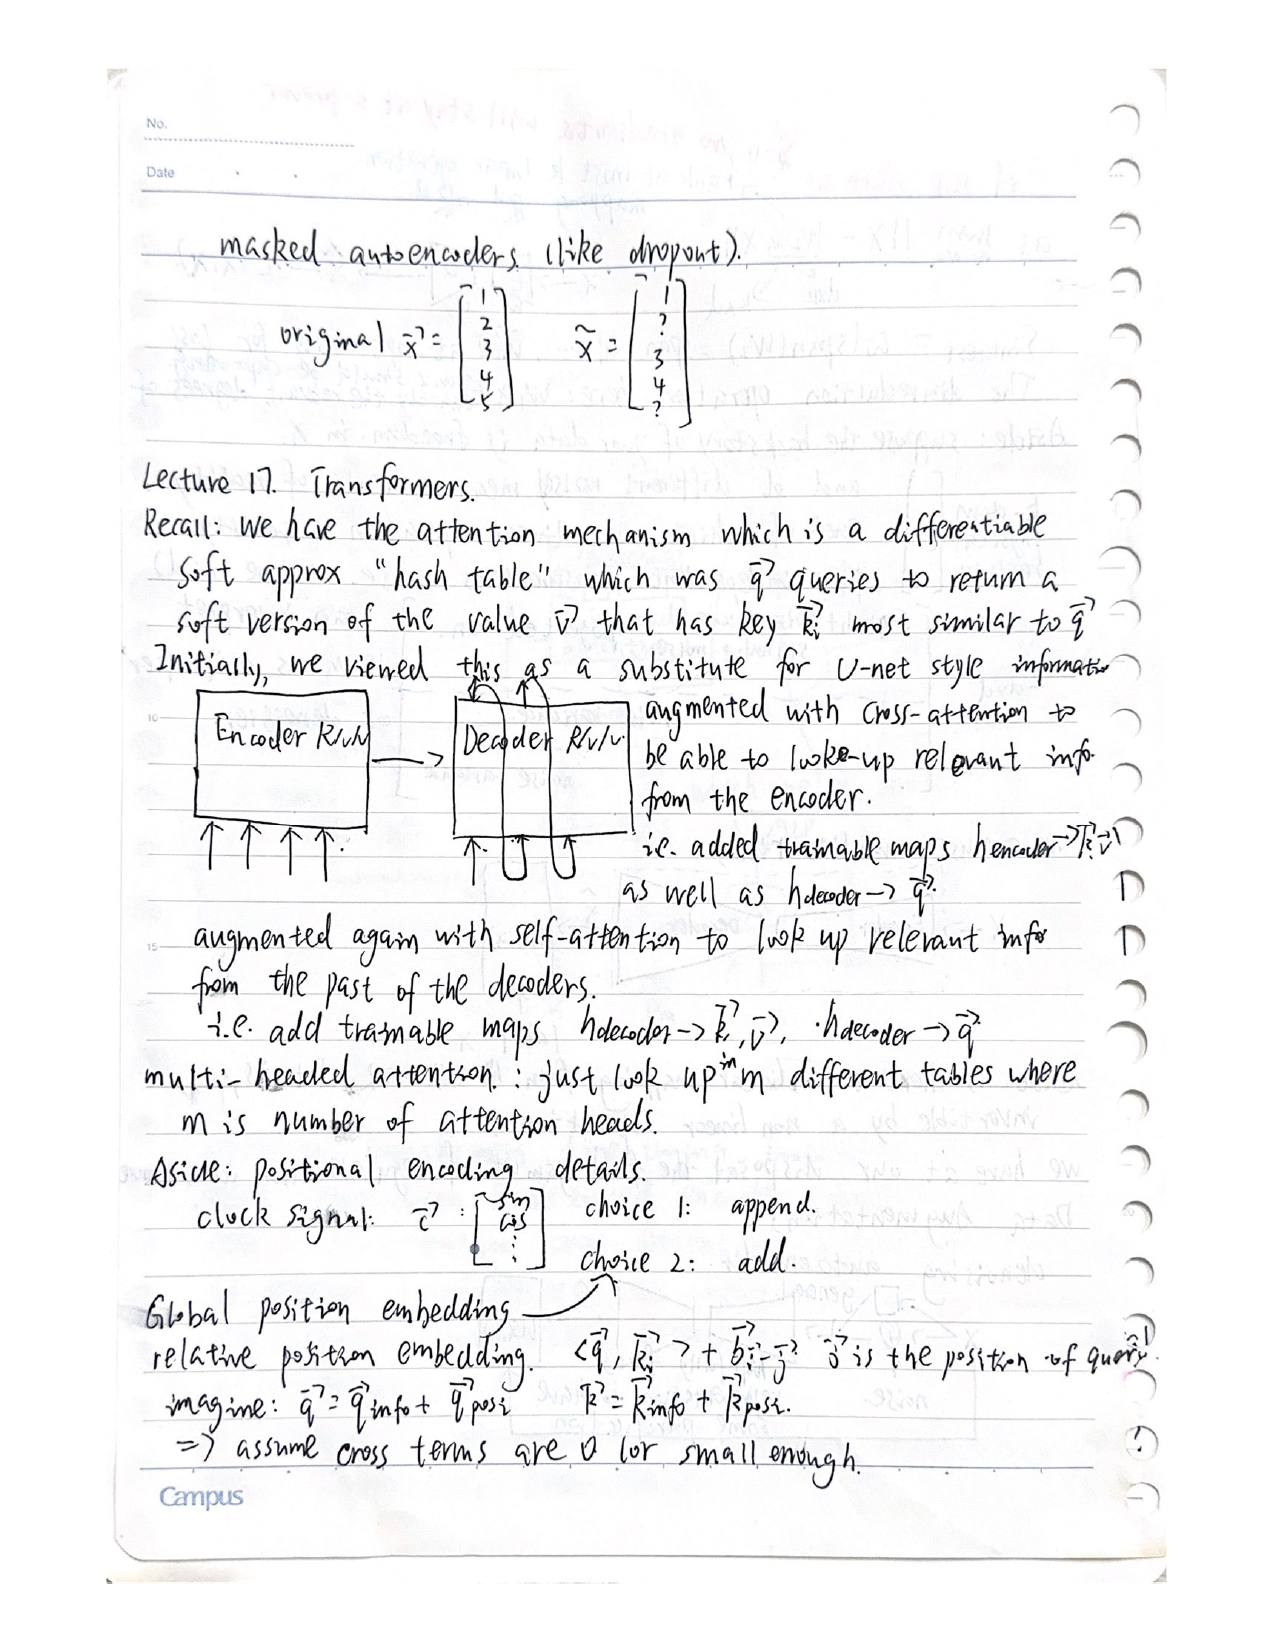 No.
Date
masked autoencoders (like dropout).
original x⃗ = [1 2 3 4 5] x̃ = [1 ? 3 4 ?]
Lecture 17. Transformers.
Recall: we have the attention mechanism which is a differentiable
soft approx "hash table" which was q⃗ queries to return a
soft version of the value v⃗ that has key k⃗i most similar to q⃗
Initially, we viewed this as a substitute for U-net style informatio
Encoder RNN
Decoder RNN
augmented with cross-attention to
be able to looke-up relevant info.
from the encoder.
i.e. added trainable maps hencoder → k⃗, v⃗
as well as hdecoder → q⃗.
augmented again with self-attention to look up relevant info
from the past of the decoders.
i.e. add trainable maps hdecoder → k⃗, v⃗, hdecoder → q⃗
multi-headed attention: just look up in m different tables where
m is number of attention heads.
Aside: positional encoding details.
clock signal: c⃗ : [sin cos ⋮] choice 1: append.
choice 2: add.
Global position embedding
relative position embedding. <q⃗, k⃗i> + b⃗i-j j⃗ is the position of query.
imagine: q⃗ = q⃗info + q⃗posi k⃗ = k⃗info + k⃗posi.
=> assume cross terms are 0 (or small enough.
Campus
10
15